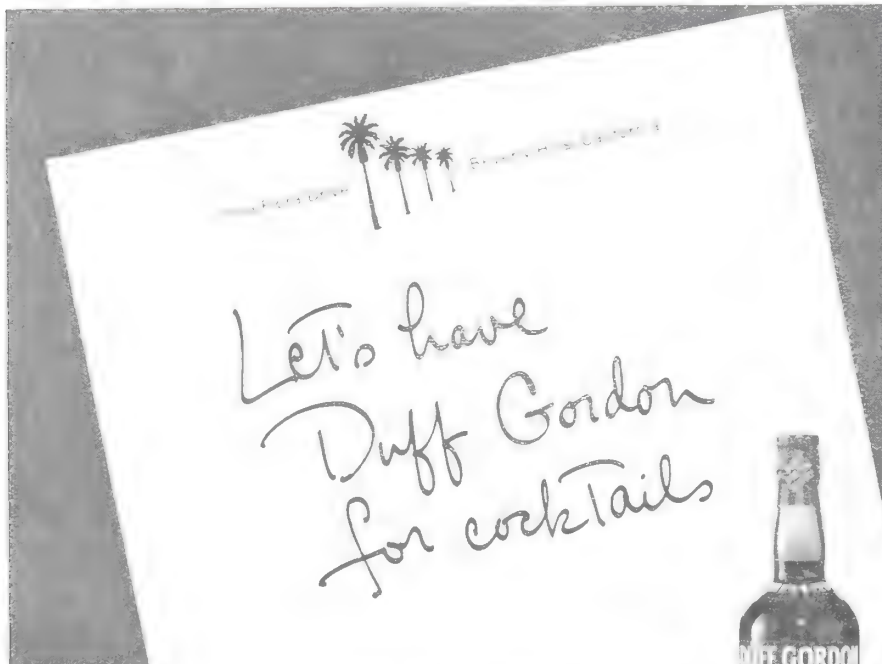 Let's have
Duff Gordon
for cocktails
DUFF GORDON